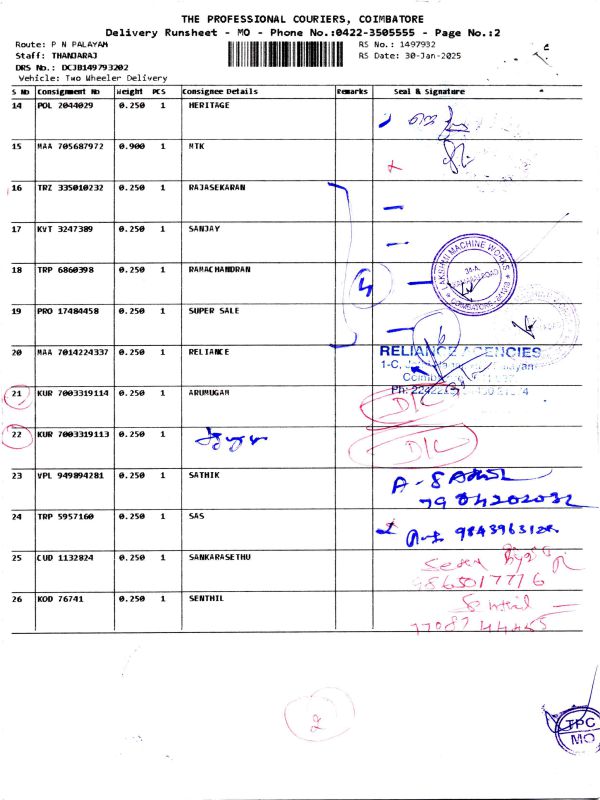 THE PROFESSIONAL COURIERS, COIMBATORE
Delivery Runsheet - MO - Phone No.:0422-3505555 - Page No.:2
Route: P N PALAYAM RS No.: 1497932
Staff: THANJARAJ RS Date: 30-Jan-2025
DRS No.: DCJB149793202
Vehicle: Two Wheeler Delivery
S No Consignment No Weight PCS Consignee Details Remarks Seal & Signature
14 POL 2044029 0.250 1 HERITAGE
15 MAA 705687972 0.900 1 MTK
16 TRZ 335010232 0.250 1 RAJASEKARAN
17 KVT 3247389 0.250 1 SANJAY
18 TRP 6860398 0.250 1 RAMACHANDRAN
LAKSHMI MACHINE WORKS
34-A
COIMBATORE
19 PRO 17484458 0.250 1 SUPER SALE
20 MAA 7014224337 0.250 1 RELIANCE
RELIANCE AGENCIES
21 KUR 7003319114 0.250 1 ARUMUGAM D/C
22 KUR 7003319113 0.250 1 D/C
23 VPL 949894281 0.250 1 SATHIK
24 TRP 5957160 0.250 1 SAS
25 CUD 1132824 0.250 1 SANKARASETHU
9865017776
26 KOD 76741 0.250 1 SENTHIL Senthil
2
TPC
MO